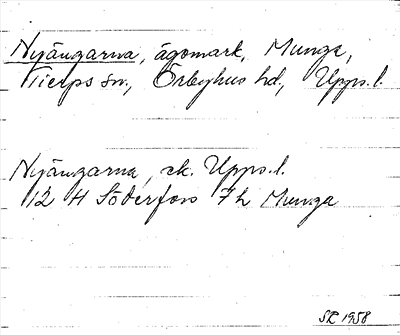 Nyängarna, ägomark, Munga,
Tierps sn., Örbyhus hd., Upps.l.
Nyängarna, ek. Upps.l.
12 H Söderfors 7h Munga
SR 1958